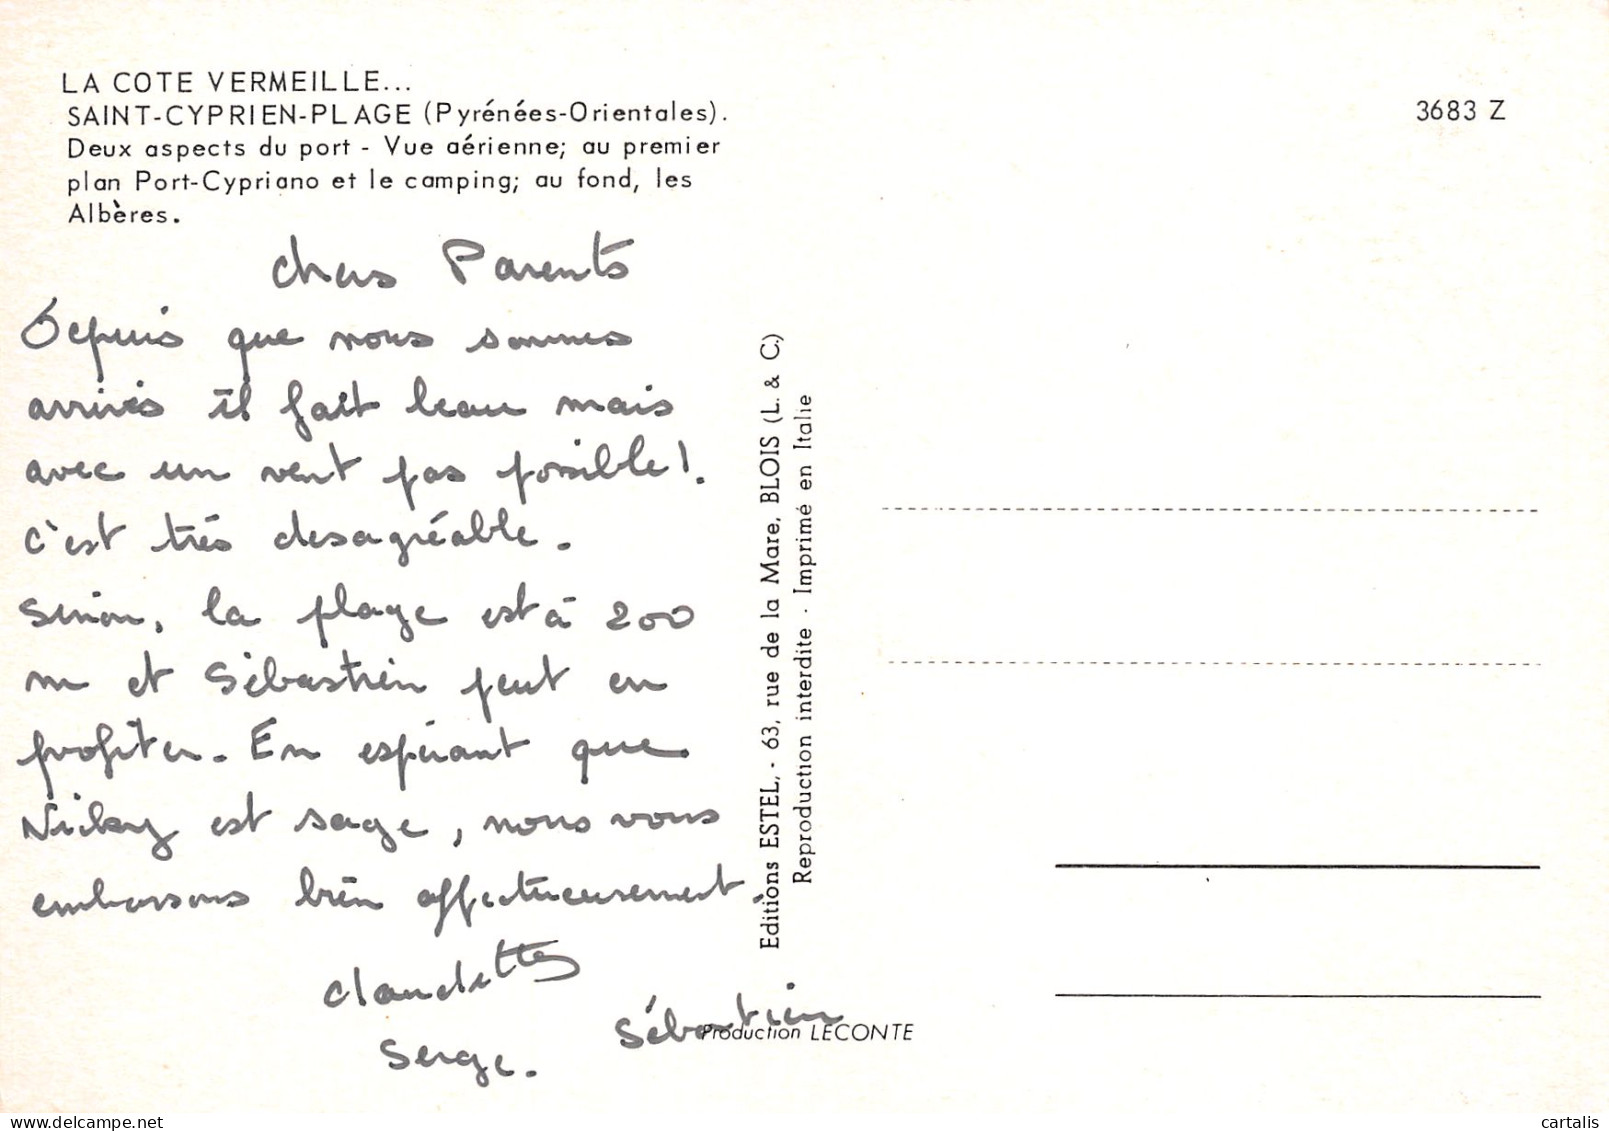 LA COTE VERMEILLE...
SAINT-CYPRIEN-PLAGE (Pyrénées-Orientales).
Deux aspects du port - Vue aérienne; au premier
plan Port-Cypriano et le camping; au fond, les
Albères.
3683 Z
Chers Parents
Depuis que nous sommes
arrivés il fait beau mais
avec un vent pas possible !.
C'est très desagréable.
Sinon, la plage est à 200
m et Sébastien peut en
profiter. En espérant que
Nicky est sage, nous vous
embrassons bien affectueusement.
Claudette
Serge.
Sébastien
Editions ESTEL, - 63, rue de la Mare, BLOIS (L. & C.)
Reproduction interdite - Imprimé en Italie
Production LECONTE
delcampe.net
cartalis